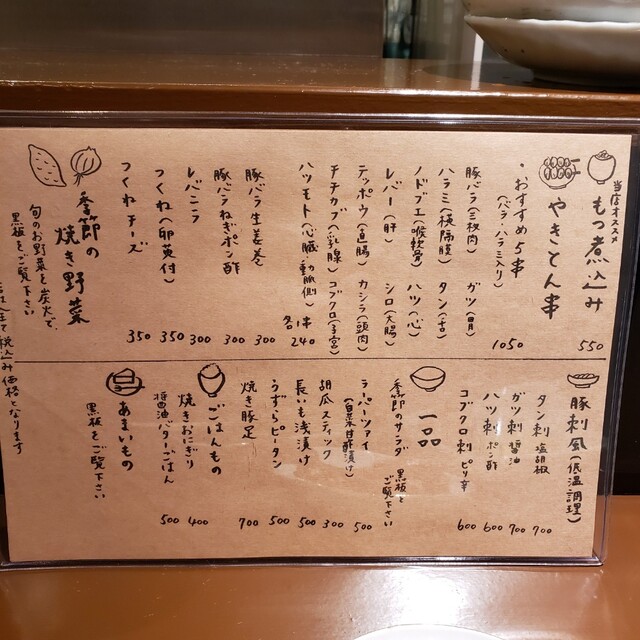 当店オススメ
もつ煮込み 550
やきとん串
・おすすめ5串
(バラ・ハラミ入り) 1050
豚バラ(三枚肉) ガツ(胃)
ハラミ(横隔膜) タン(舌)
ノドブエ(喉軟骨) ハツ(心)
レバー(肝) シロ(大腸)
テッポウ(直腸) カシラ(頭肉)
チチカブ(乳腺) コブクロ(子宮)
ハツモト(心臓・動脈側) 各1串 240
豚バラ生姜巻 300
豚バラねぎポン酢 300
レバニラ 300
つくね(卵黄付) 350
つくねチーズ 350
季節の
焼き野菜
旬のお野菜を炭火で。
黒板をご覧下さい
全て税込み価格となります
豚刺風(低温調理)
タン刺 塩胡椒 700
ガツ刺 醤油 700
ハツ刺 ポン酢 600
コブクロ刺 ピリ辛 600
一品
季節のサラダ 黒板をご覧下さい
ラーパーツァイ
(白菜甘酢漬け) 500
胡瓜スティック 300
長いも浅漬け 500
うずらピータン 500
焼き豚足 700
ごはんもの
焼きおにぎり 400
醤油バターごはん 500
あまいもの
黒板をご覧下さい